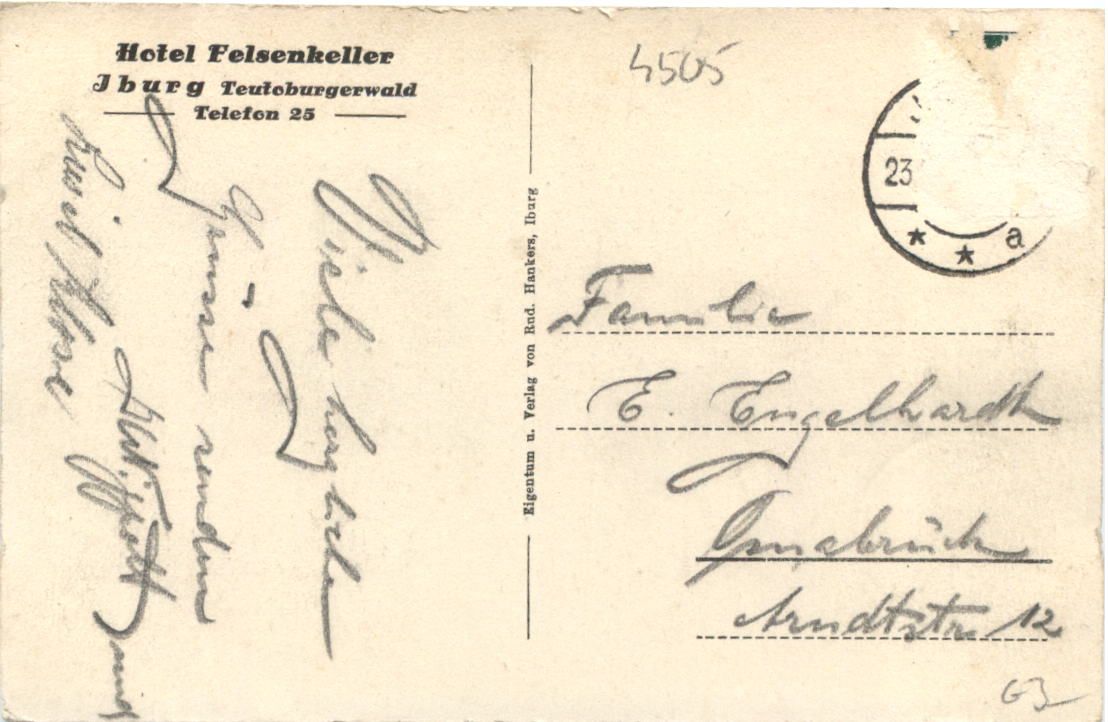 Hotel Felsenkeller
Iburg Teutoburgerwald
Telefon 25
4505
23
* * a
Viele herzliche
Grüsse senden
und
Liesel Klose
Eigentum u. Verlag von Rud. Hankers, Iburg
Familie
E. Engelhardt
Osnabrück
Arndtstr. 12
63